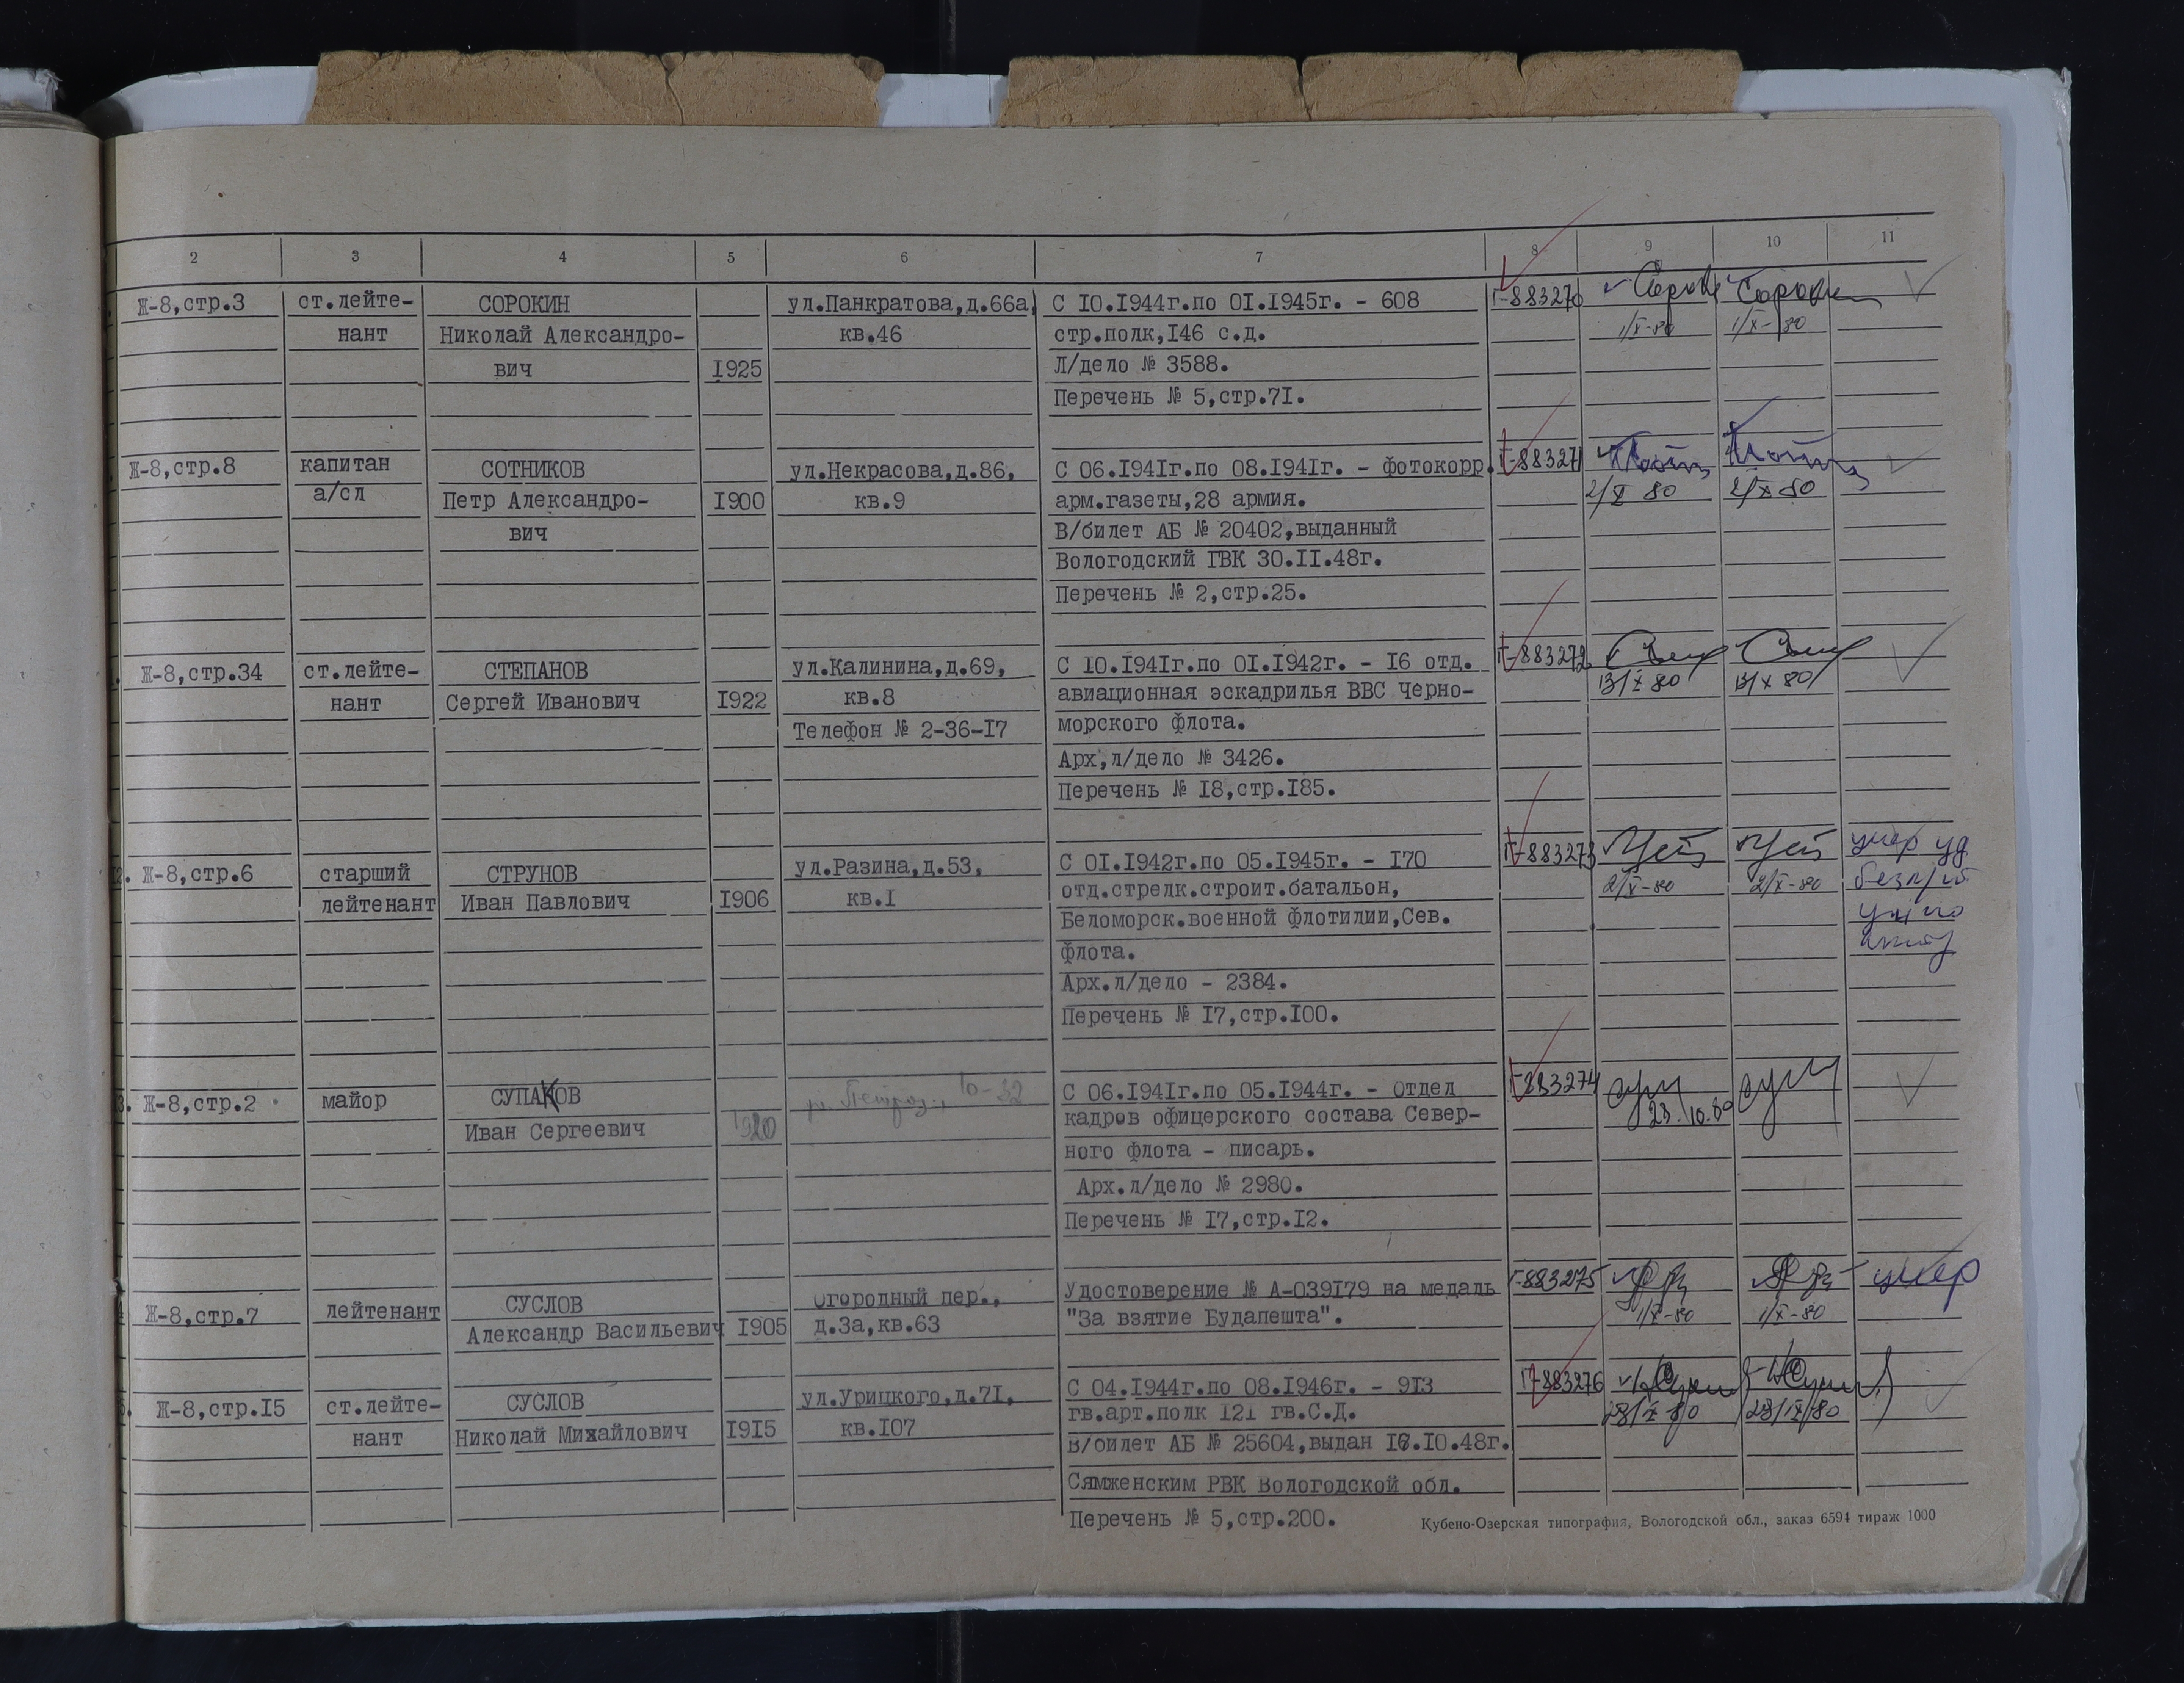 2 3 4 5 6 7 8 9 10 11
Ж-8,стр.3 ст.лейте- СОРОКИН ул.Панкратова,д.66а, С 10.1944г.по 01.1945г. - 608 Г-883270
нант Николай Александро- кв.46 стр.полк,146 с.д. 1/X-80 1/X-80
вич 1925 Л/дело № 3588.
Перечень № 5,стр.71.
Ж-8,стр.8 капитан СОТНИКОВ ул.Некрасова,д.86, С 06.1941г.по 08.1941г. - фотокорр. Г-883271
а/сл Петр Александро- 1900 кв.9 арм.газеты,28 армия. 2/X 80 2/X 80
вич В/билет АБ № 20402,выданный
Вологодский ГВК 30.11.48г.
Перечень № 2,стр.25.
Ж-8,стр.34 ст.лейте- СТЕПАНОВ ул.Калинина,д.69, С 10.1941г.по 01.1942г. - 16 отд. Г-883272
нант Сергей Иванович 1922 кв.8 авиационная эскадрилья ВВС Черно- 13/X 80 13/X 80
Телефон № 2-36-17 морского флота.
Арх,л/дело № 3426.
Перечень № 18,стр.185.
2. Ж-8,стр.6 старший СТРУНОВ ул.Разина,д.53, С 01.1942г.по 05.1945г. - 170 Г-883273 умер уд
лейтенант Иван Павлович 1906 кв.1 отд.стрелк.строит.батальон, 2/X-80 2/X-80
Беломорск.военной флотилии,Сев.
флота.
Арх.л/дело - 2384.
Перечень № 17,стр.100.
3. Ж-8,стр.2 майор СУПАКОВ 10-32 С 06.1941г.по 05.1944г. - Отдел Г-883274
Иван Сергеевич 1920 кадров офицерского состава Север- 23.10.80
ного флота - писарь.
Арх.л/дело № 2980.
Перечень № 17,стр.12.
Ж-8,стр.7 лейтенант СУСЛОВ Огородный пер., Удостоверение № А-039179 на медаль Г-883275 умер
Александр Васильевич 1905 д.3а,кв.63 "За взятие Будапешта". 1/X-80 1/X-80
Ж-8,стр.15 ст.лейте- СУСЛОВ ул.Урицкого,д.71, С 04.1944г.по 08.1946г. - 913 Г-883276
нант Николай Михайлович 1915 кв.107 гв.арт.полк 121 гв.С.Д.
В/билет АБ № 25604,выдан 16.10.48г.
Сямженским РВК Вологодской обл.
Перечень № 5,стр.200.
Кубено-Озерская типография, Вологодской обл., заказ 6594 тираж 1000